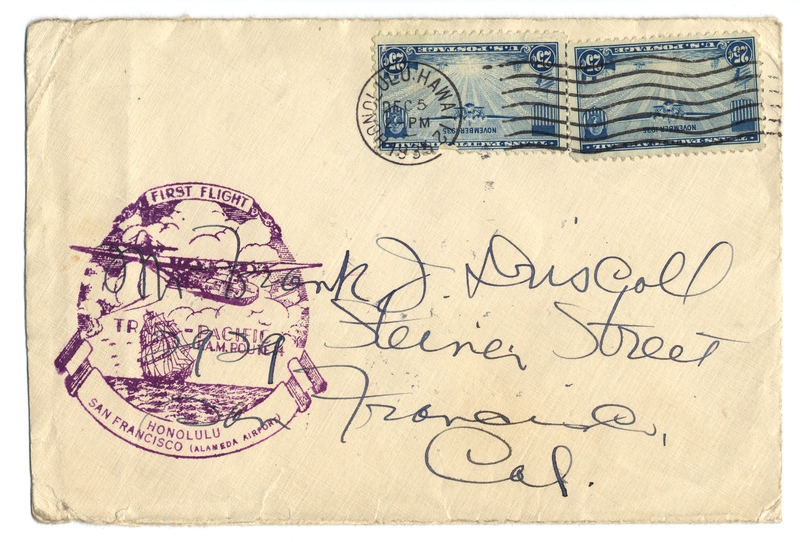 25¢ U.S. POSTAGE 25¢
NOVEMBER 1935
TRANS-PACIFIC AIR MAIL
25¢ U.S. POSTAGE 25¢
NOVEMBER 1935
TRANS-PACIFIC AIR MAIL
HONOLULU, HAWAII
DEC 5
PM
1935
FIRST FLIGHT
TRANS-PACIFIC
F.A.M. ROUTE 14
HONOLULU
SAN FRANCISCO (ALAMEDA AIRPORT)
Mr. Frank J. Driscoll
2959 Steiner Street
San Francisco,
Cal.